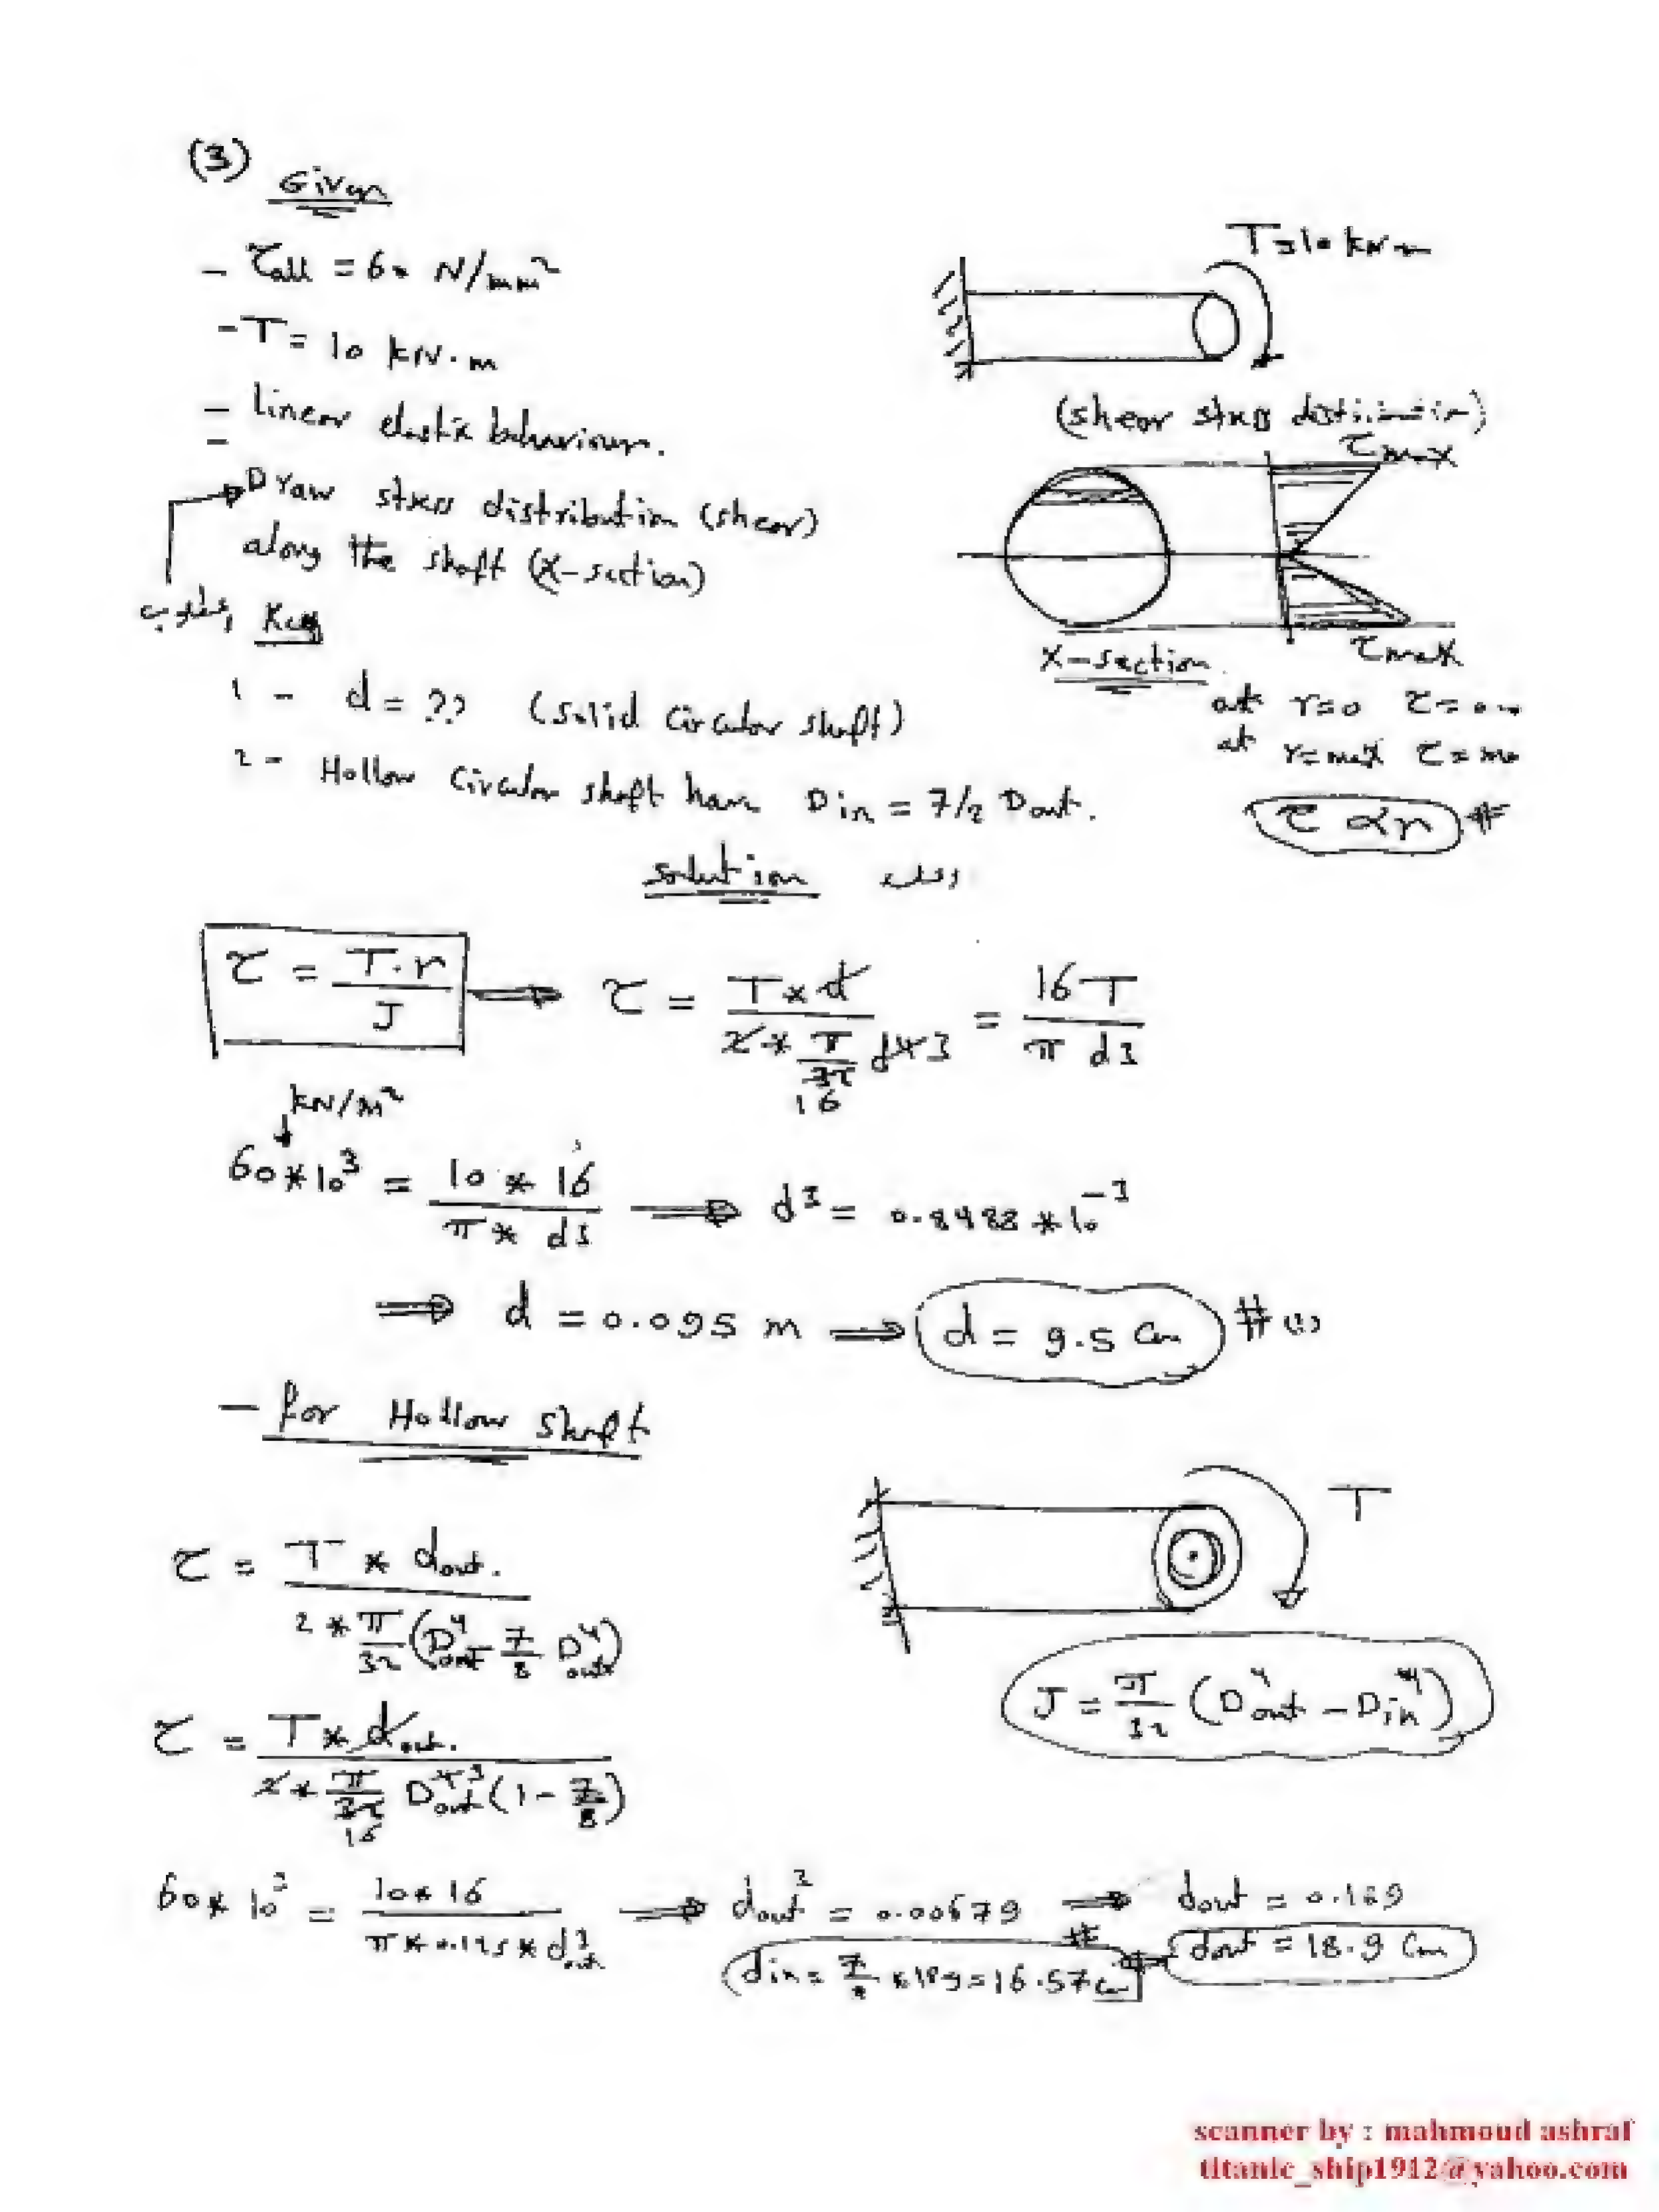 (3) Given
- τall = 60 N/mm²
- T = 10 kN.m
- linear elastic behaviour.
Draw stress distribution (shear)
along the shaft (X-section)
مطلوب
Req
1 - d = ?? (solid circular shaft)
2 - Hollow circular shaft have Din = 7/2 Dout.
T=10 kN m
(shear stress distribution)
τmax
τmax
X-section
at r=0 τ=0
at r=max τ=
τ α r #
solution
τ = T.r / J ⟹ τ = T * d / 2 * π/32 16 d4 3 = 16 T / π d3
kN/m²
60*10³ = 10 * 16 / π * d3 ⟹ d³ = 0.8488 * 10⁻³
⟹ d = 0.095 m ⟹ d = 9.5 cm # (1)
- for Hollow shaft
T
τ = T * dout. / 2 * π/32 (D⁴out - 7/8 D⁴out)
J = π/32 (D⁴out - D⁴in)
τ = T * dout. / 2 * π/32 16 Dout4 3 (1 - 7/8)
60 * 10³ = 10 * 16 / π * 0.125 * d³out ⟹ dout³ = 0.00679 ⟹ dout = 0.189
din = 7/8 * 18.9 = 16.57 cm # dout = 18.9 cm
scanner by : mahmoud ashraf
titanic_ship1912@yahoo.com